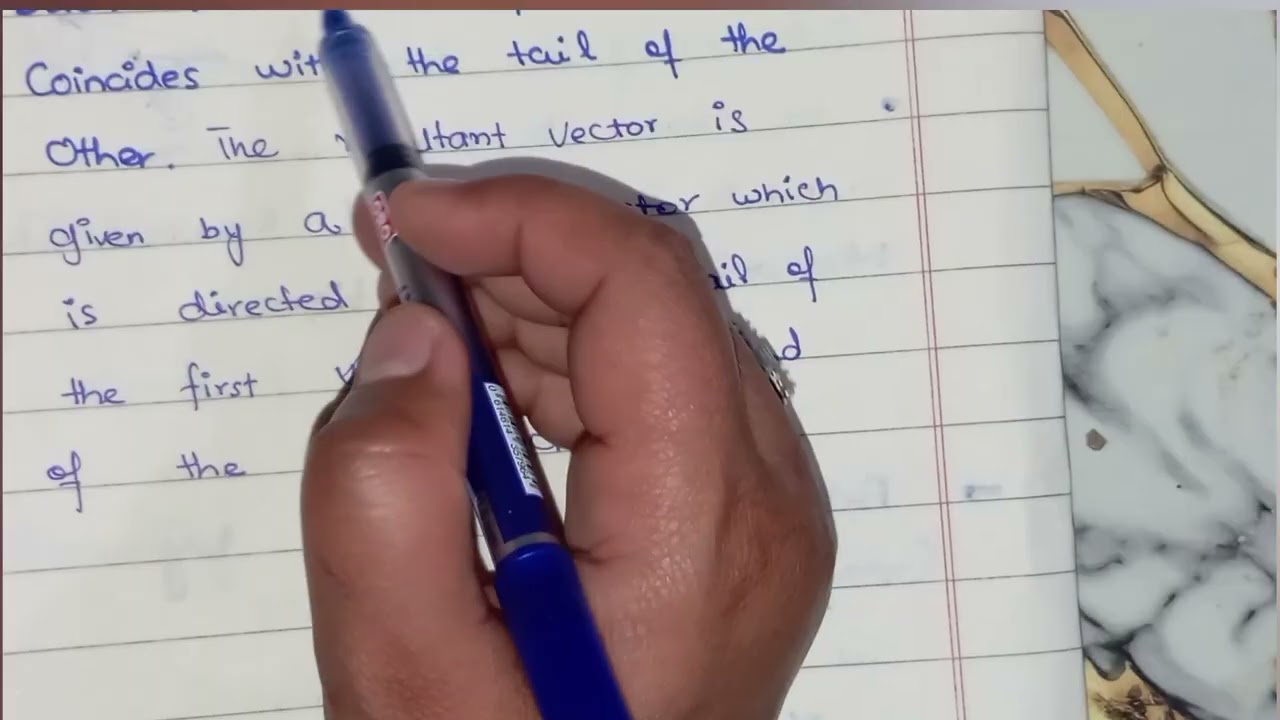 Coincides wit the tail of the
Other. The ltant vector is
given by a tor which
is directed il of
the first d
of the